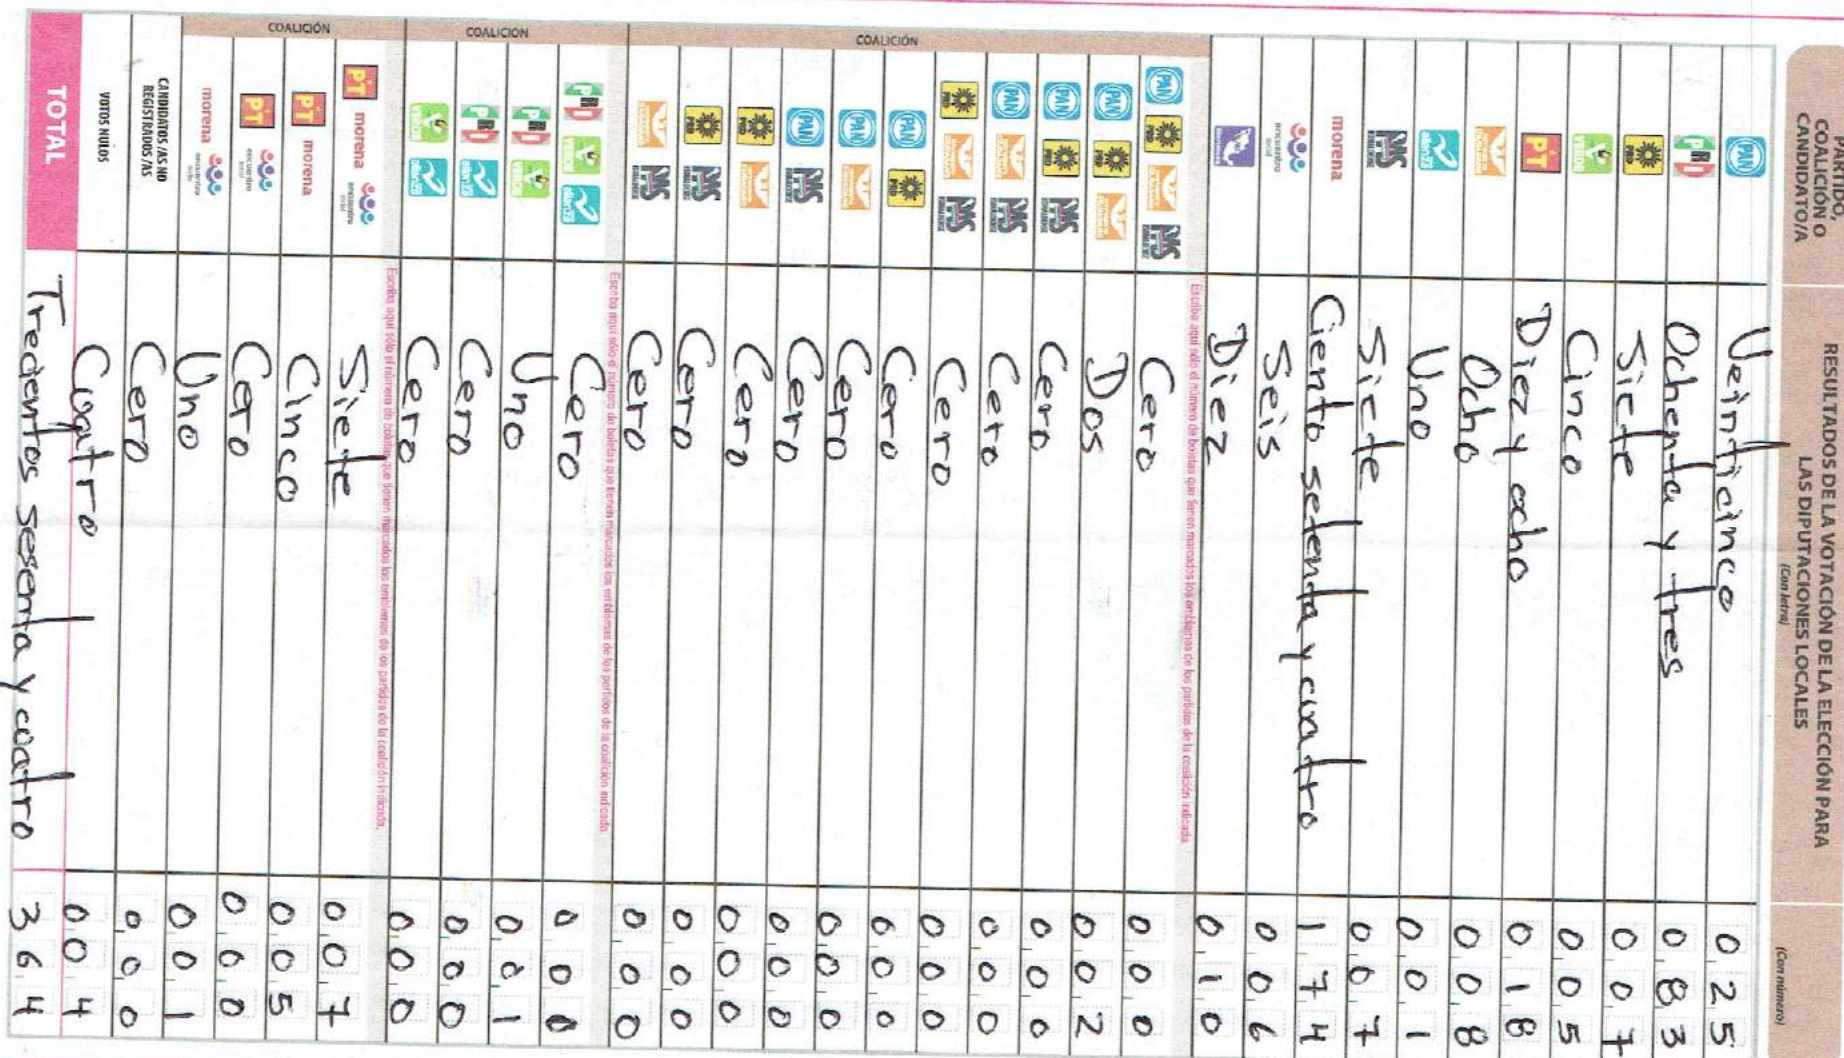 PARTIDO, COALICIÓN O CANDIDATO/A
RESULTADOS DE LA VOTACIÓN DE LA ELECCIÓN PARA LAS DIPUTACIONES LOCALES
(Con letra)
(Con número)
PAN Veinticinco 025
PRI Ochenta y tres 083
PRD Siete 007
VERDE Cinco 005
PT Diez y ocho 018
Ocho 008
alianza Uno 001
Siete 007
morena Ciento setenta y cuatro 174
encuentro social Seis 006
Diez 010
Escriba aquí sólo el número de boletas que tienen marcados los emblemas de los partidos de la coalición indicada.
COALICIÓN
PAN PRD Cero 000
PAN PRD Dos 002
PAN PRD Cero 000
PAN Cero 000
PRD Cero 000
PAN PRD Cero 000
PAN Cero 000
PAN Cero 000
PRD Cero 000
PRD Cero 000
Cero 000
Escriba aquí sólo el número de boletas que tienen marcados los emblemas de los partidos de la coalición indicada.
COALICIÓN
PRI VERDE alianza Cero 000
PRI VERDE Uno 001
PRI alianza Cero 000
VERDE alianza Cero 000
Escriba aquí sólo el número de boletas que tienen marcados los emblemas de los partidos de la coalición indicada.
COALICIÓN
PT morena encuentro social Siete 007
PT morena Cinco 005
PT encuentro social Cero 000
morena encuentro social Uno 001
CANDIDATOS/AS NO REGISTRADOS/AS Cero 000
VOTOS NULOS Cuatro 004
TOTAL Trecientos sesenta y cuatro 364